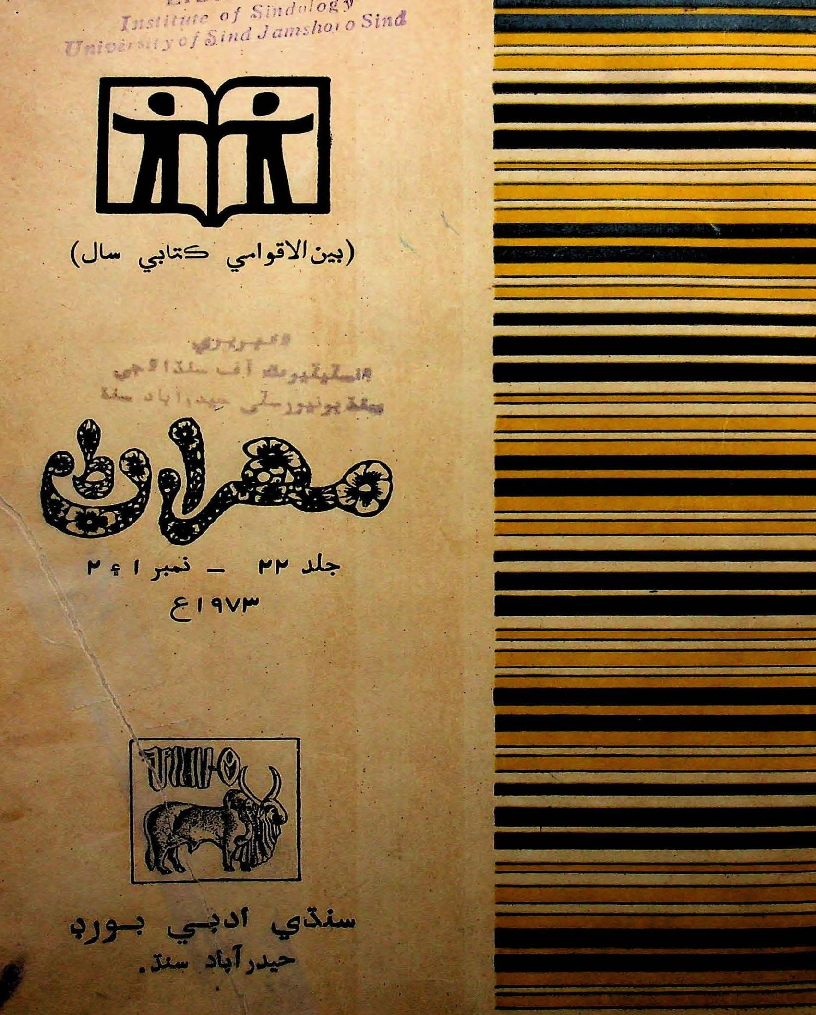 Institute of Sindology
University of Sind Jamshoro Sind
(بين الاقوامي ڪتابي سال)
لائبريري
انسٽيٽيوٽ آف سنڌالاجي
سنڌ يونيورسٽي حيدرآباد سنڌ
مهراڻ
جلد ۲۲ – نمبر ۱ ۽ ۲
۱۹۷۳ع
سنڌي ادبي بورڊ
حيدرآباد سنڌ.